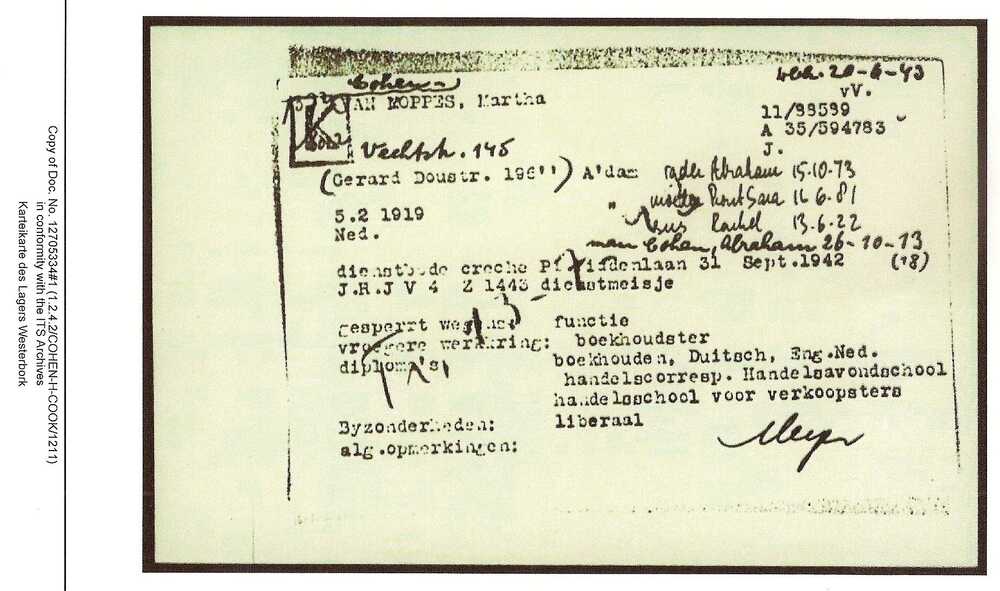 Copy of Doc. No. 12705334#1 (1.2.4.2/COHEN-H-COOK/1211)
in conformity with the ITS Archives
Karteikarte des Lagers Westerbork
Wbk. 20-6-43
Cohen-
VAN MOPPES, Martha
vV.
11/88589
A 35/594783
J.
K
Vechtstr. 145
(Gerard Doustr. 196'') A'dam vader Abraham 15.10-73
" moeder Sara 16.6.81
5.2 1919 zus Rachel 13.6-22
Ned. man Cohen, Abraham 26-10-13
(18)
dienstbode creche 31 Sept.1942
J.R.J V 4 Z 1443 dienstmeisje
gesperrt wegens: functie
vroegere werkkring: boekhoudster
diploma's, boekhouden, Duitsch, Eng.Ned.
handelscorresp. Handelsavondschool
handelsschool voor verkoopsters
Byzonderheden: liberaal
alg.opmerkingen: